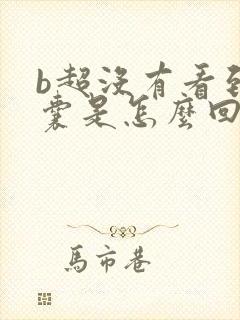 b超沒有看到
囊是怎麼回
馬市巷